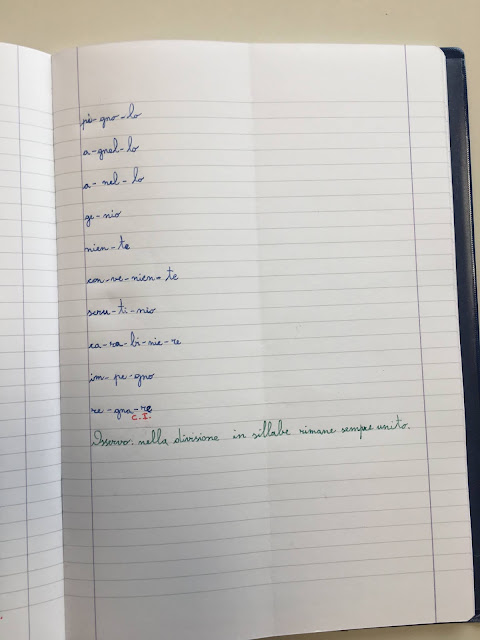 pi-gno-lo
a-gnel-lo
a-nel-lo
ge-nio
nien-te
con-ve-nien-te
scru-ti-nio
ca-ra-bi-nie-re
im-pe-gno
re-gna-re
C.I.
Osservo: nella divisione in sillabe rimane sempre unito.